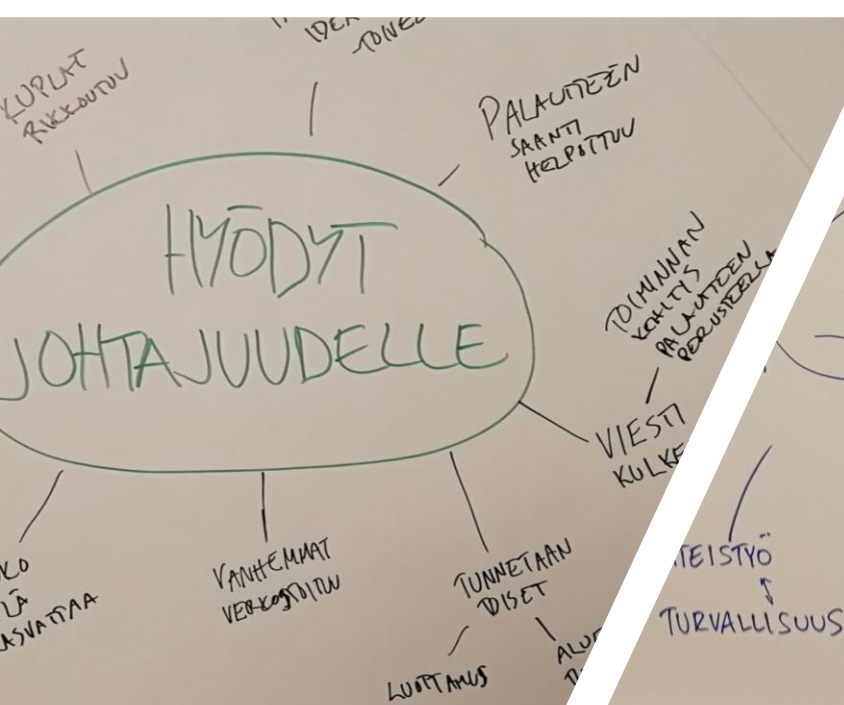 KUPLAT
RIKKOUTUU
PALAUTTEEN
SAANTI
HELPOTTUU
HYÖDYT
JOHTAJUUDELLE
TOIMINNAN
KEHITYS
PALAUTTEEN
PERUSTEELLA
VIESTI
KULKE
VANHEMMAT
VERKOSTOITUU
TUNNETAAN
DISET
LUOTTAMUS
ASVATTAA
TEISTYÖ
TURVALLISUUS